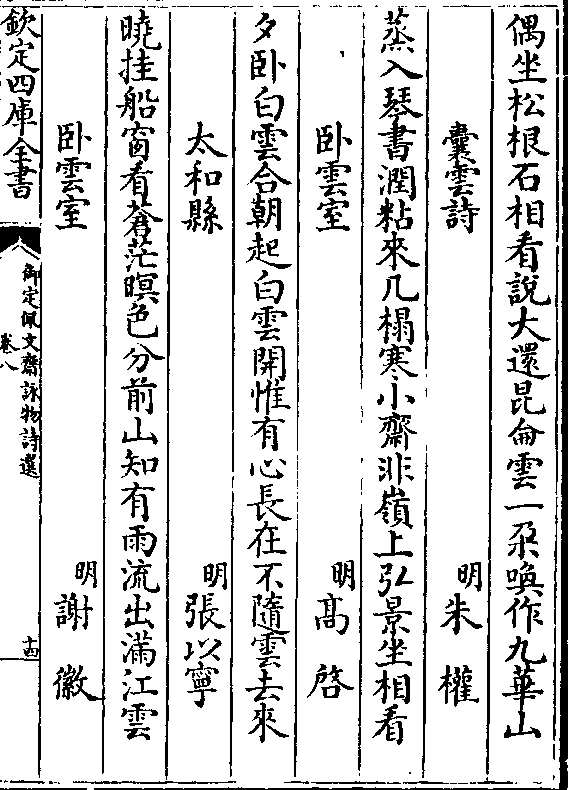 偶坐松根石相看説大還昆侖雲一朶喚作九華山
囊雲詩　明朱權
蒸入琴書潤粘來几榻寒小齋非嶺上弘景坐相看
卧雲室　明高啓
夕卧白雲合朝起白雲開惟有心長在不隨雲去來
太和縣　明張以寧
曉挂船窗看蒼茫暝色分前山知有雨流出滿江雲
卧雲室　明謝徽
欽定四庫全書　御定佩文齋詠物詩選　卷八　十四